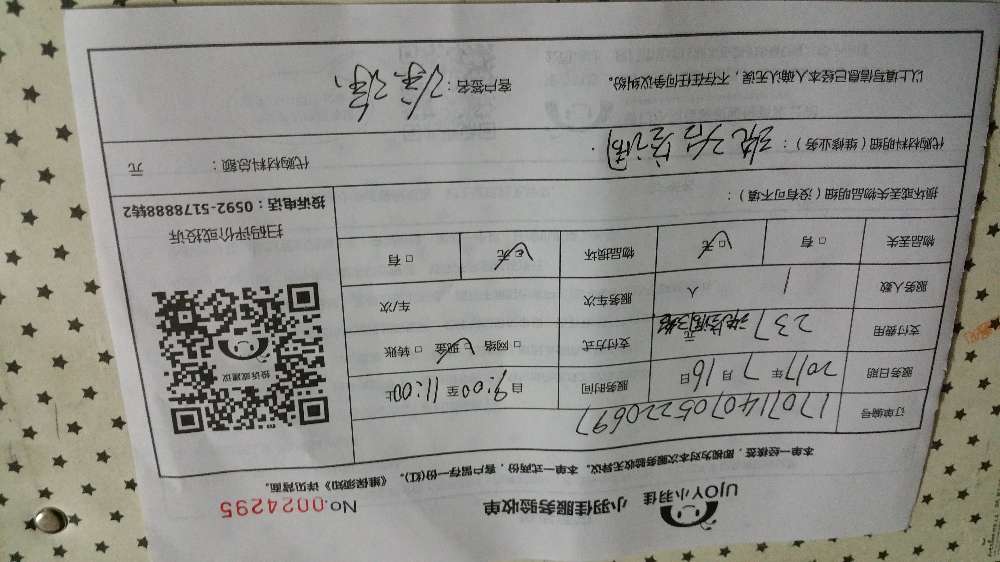 UJOY小羽佳
小羽佳服务验收单
No.0024295
本单一经核签，即视为对本次服务验收无异议。本单一式两份，客户留存一份(红)。《维保须知》详见背面。
订单编号 1707140705220697
服务日期 2017年7月16日 服务时间 自9:00至11:00止
支付费用 237元 支付方式 □网络 □现金 □转账
服务人数 1 人 服务车次 车/次
物品丢失 □有 □无 物品损坏 □无 □有
投诉或建议
扫码评价或投诉
投诉电话：0592-5178888转2
损坏或丢失物品明细（没有可不填）：
代购材料明细（维修业务）：
代购材料总额： 元
以上填写信息已经本人确认无误，不存在任何争议纠纷。
客户签名：